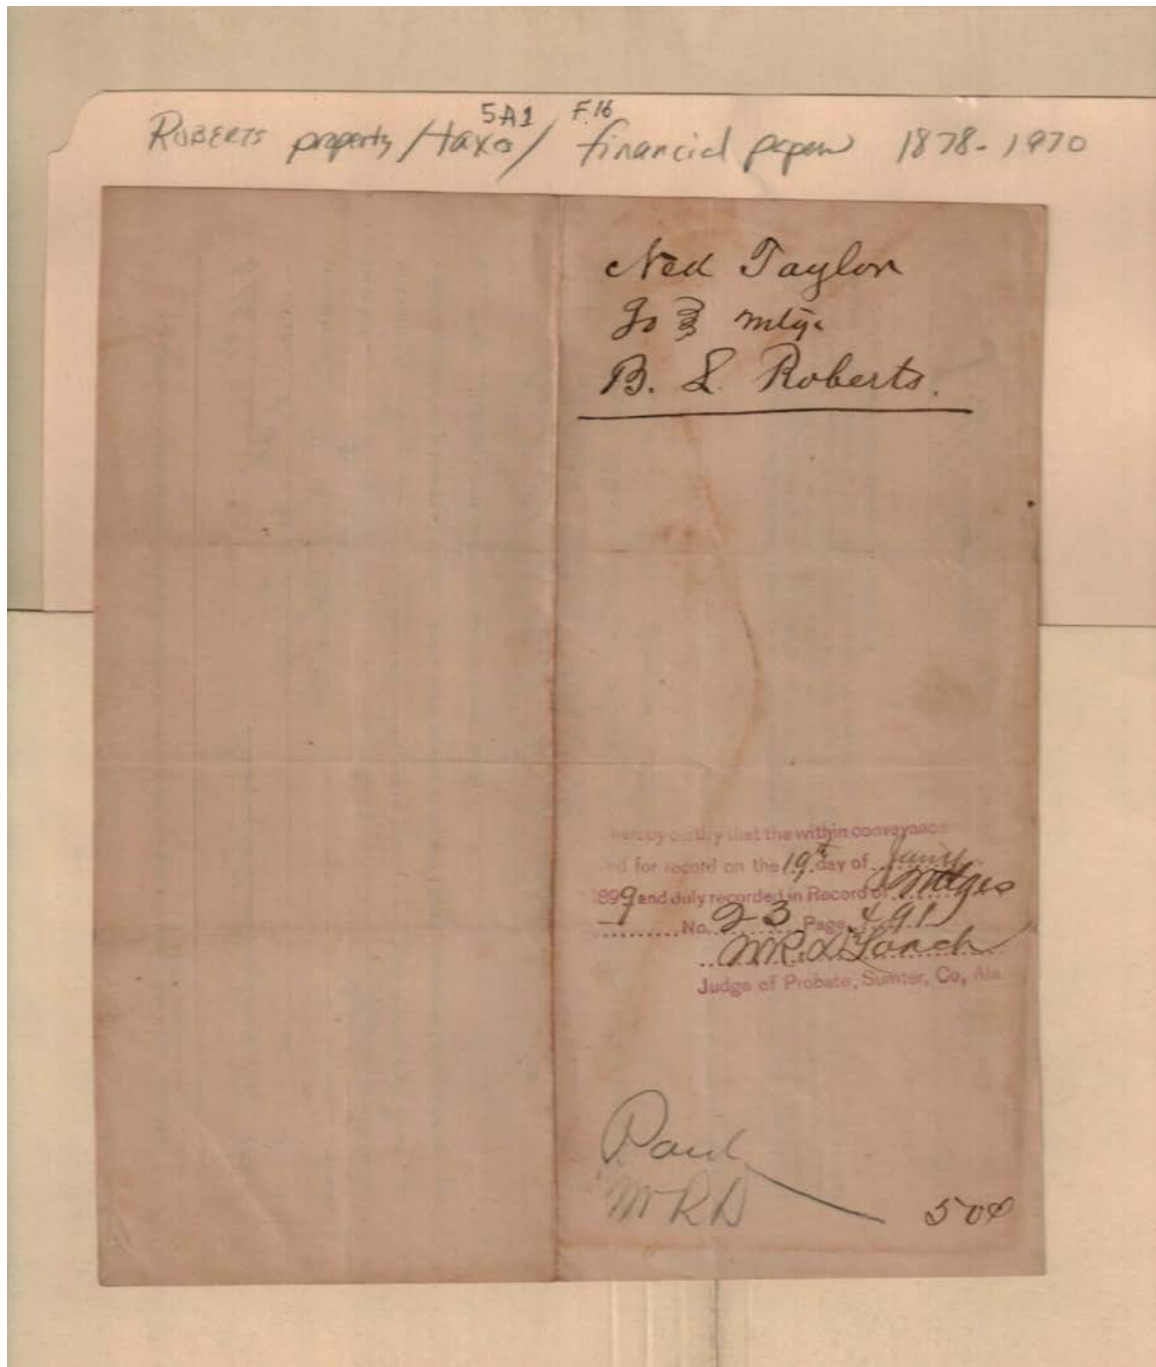 5A1 F.16
ROBERTS property/taxes/financial papers 1878-1970
Ned Taylor
To } mtge
B. L. Roberts.
hereby certify that the within conveyance
ed for record on the 19th day of
899 and duly recorded in Record of Mtges
No. 23 Page 491
Judge of Probate, Sumter, Co, Ala
Paid
50¢